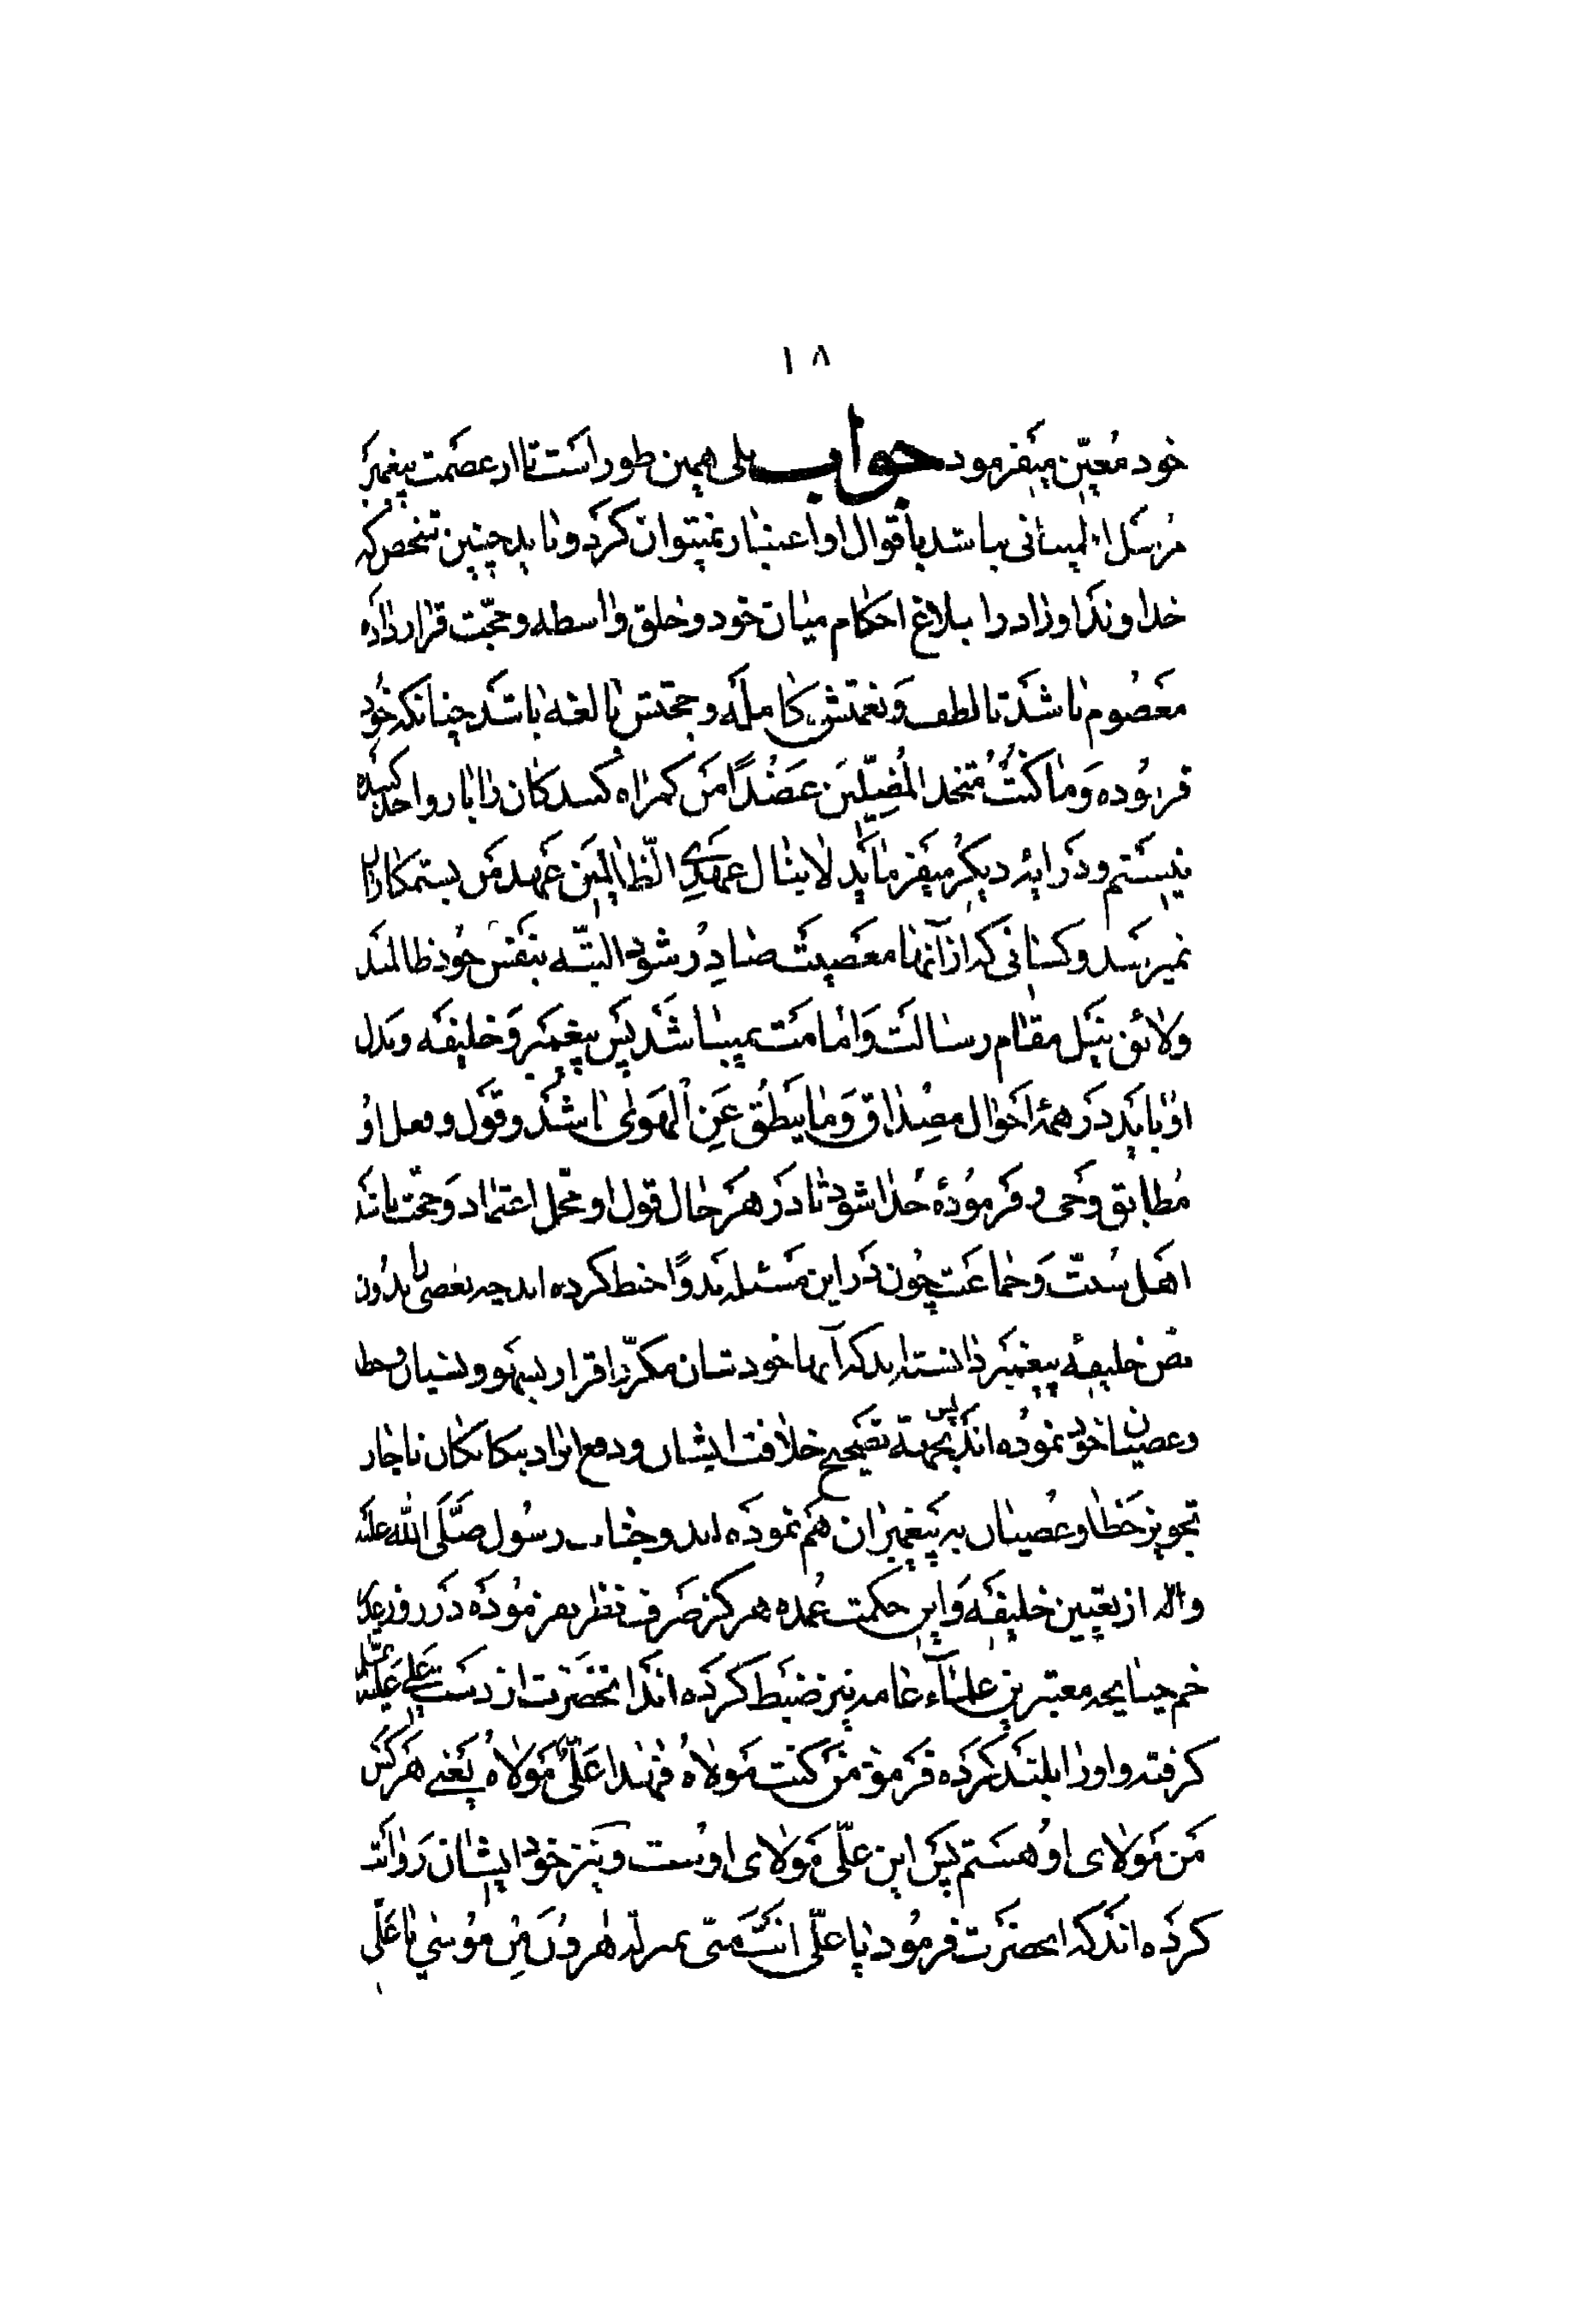 ١٨
خود مُعيّن ميفرمود جواب بلى همين طور است تا از عصمت پيغمبر
مُرسل اطمينانى نباشد باقوال او اعتبار نميتوان كرد و بايد چنين شخص كه
خداوند او را در ابلاغ احكام ميان خود و خلق واسطه و حجّت قرار داده
معصُوم باشد تا لطف و نعمتش كامله و حجّتش بالغه باشد چنانكه خود
فرموده وَما كُنتُ مُتّخذ المُضِلّينَ عَضُدًا من گمراه كنندگان را يار و اخذ كننده
نيستم و در آيۀ ديگر ميفرمايد لا ينال عَهدِي الظّالمينَ عهد من بستمكاران
نميرسد و كسانى كه از آنها معصيت صادِر شود البتّه بنفس خود ظالمند
ولائق نيل مقام رسالت و امامت نميباشند پس پيغمبر و خليفه و بدل
او بايد در همۀ احوال مصِداق وَما ينطُق عَنِ الْهَوى باشد و قول و فعل او
مُطابق وحى و فرمُودۀ خدا شود تا در هر حال قول او محلّ اعتماد و حجّت باشد
اهل سُنّت و جماعت چون در اين مسئله بدوًا خبط كرده‌اند چه بعضى را بدون
نص خليفۀ پيغمبر دانسته‌اند كه آنها خودشان مكرّرا اقرار بسهو و نسيان و خطا
و عصيان خود نموده‌اند پس بجهة تصحيح خلافت ايشان و دفع ايراد بيگانگان ناچار
تجويز خطا و عصيان به پيغمبران هم نموده‌اند و جناب رسُول صَلّى الله عليه
وآله از تعيين خليفه و اين حكمت عُمده هرگز صرف نظر نفرموده در روز غدير
خم چنانچه معتبرين علماۤء عامه نيز ضبط كرده‌اند آنحضرت از دست على عليه السّلم
گرفته و او را بلند كرده فرمود مَن كنت مَولاهُ فهٰذا عَلىٌّ مَولاهُ يعنى هر كس
من مولاى او هستم پس اين علّى مولاى اوست و نيز خود ايشان روايت
كرده‌اند كه آنحضرت فرمُود يا علّى انتَ منّى بمنزلة هٰرُونَ مِنْ مُوسٰي يا على